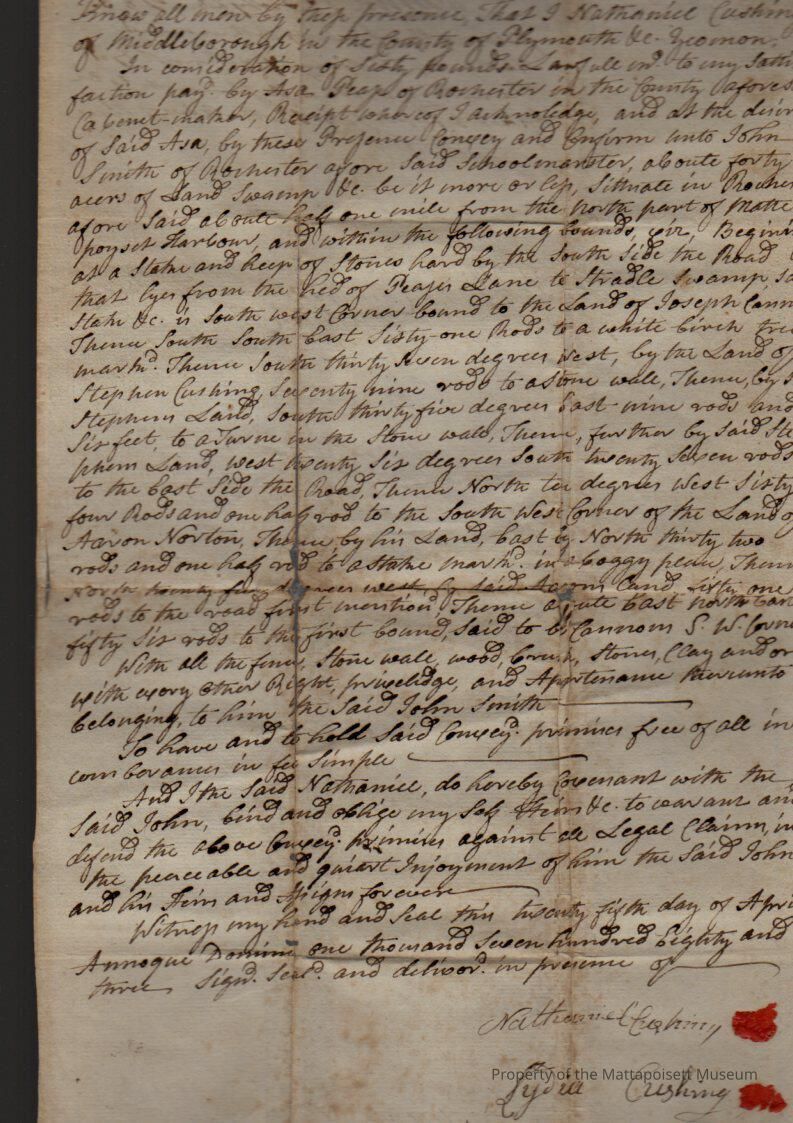 Know all men by these presence, That I Nathaniel Cushin
of Middleborough in the County of Plymouth &c. Yeomon,
In consideration of Sixty pounds Lawfull m to my Satis
faction pay.d by Asa Peap of Rochester in the County afores
Cabenet-maker, Receipt whereof I acknoledge, and at the disir
of Said Asa, by these Presence Convey and Confirm unto John
Smith of Rochester afore Said Schoolmarster, aboute forty
acers of Land Swamp &c. be it more or less, Sittuate in Roches
afore Said aboute half one mile from the North part of Matte
poyset Harbour, and within the following bounds, viz. Begini
at a Stake and heep of Stones hard by the South Side the Road
that lyes from the hed of Peapes Lane to Stradle Swamp, Sa
Stake &c. is South west Corner bound to the Land of Joseph Cann
Thence South South East Sixty-one Rods to a white birch tre
mark.d Thence South thirty Seven degrees West, by the Land of
Stephen Cushing, Seventy nine rods to a Stone wale, Thence, by S
Stephens Land, South thirty five degrees East nine rods and
Six feet, to a Turne in the Stone wale, Thence, further by Said Ste
phens Land, west twenty Six degrees South twenty Seven rods
to the East Side the Road, Thence North ten degrees West Sixty
four Rods and one half rod to the South West Corner of the Land o
Aaron Norton, Thence by his Land, East by North thirty two
rods and one half rod to a Stake mark.d in a boggy peace, Then
North twenty five degrees west by Said Aarons Land fifty one
rods to the road first mention.d Thence aboute East North Eas
fifty Six rods to the first bound, Said to be Cannons S. W. Corne
With all the fence, Stone wale, wood, brush, Stones, Clay and or
with every other Right, priveledge, and Apertenance thereunto
belonging, to him, the Said John Smith
To have and to hold Said Convey.d primises free of all in
comborances in fee Simple
And I the Said Nathaniel, do hereby Covenant with the
Said John, bind and oblige my Self Heirs &c. to warant an
defend the above Convey.d primises against all Legal Claims, in
the peaceable and quiart Injoyment of him the Said John
and his Heirs and Assigns forever
Witness my hand and Seal this twenty fifth day of Apri
Annoque Domine one thousand Seven hundred Eighty and
three Sign.d Seal.d and deliver.d in presence of
Nathaniel Cushing
Property of the Mattapoisett Museum
Lydia Cushing